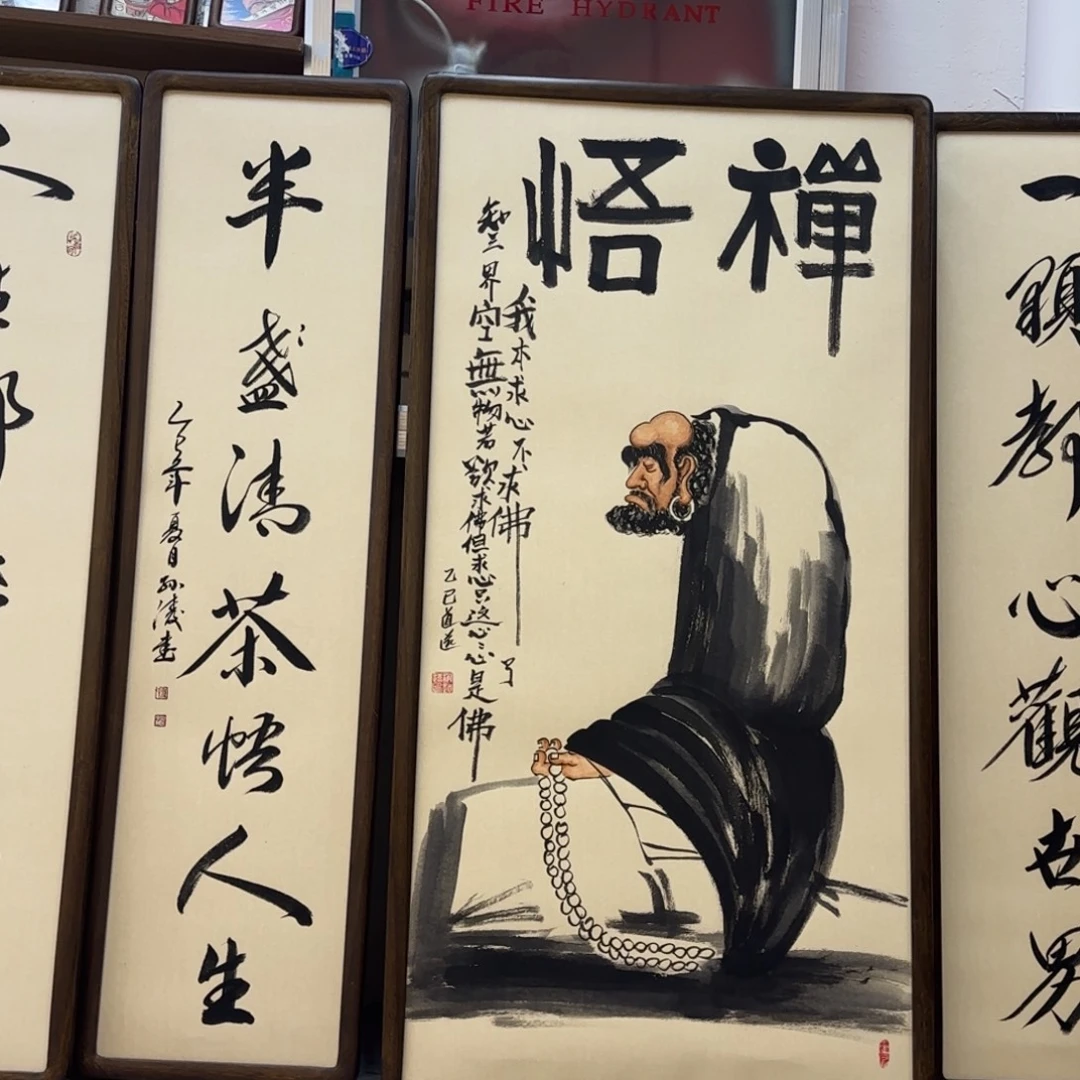 FIRE HYDRANT
半盏清茶悟人生
乙巳年夏月孙涛書
禪悟
我本求心不求佛了
知三界空無物若欲求佛但求心只這心心心是佛
乙巳道远
教心觀世男